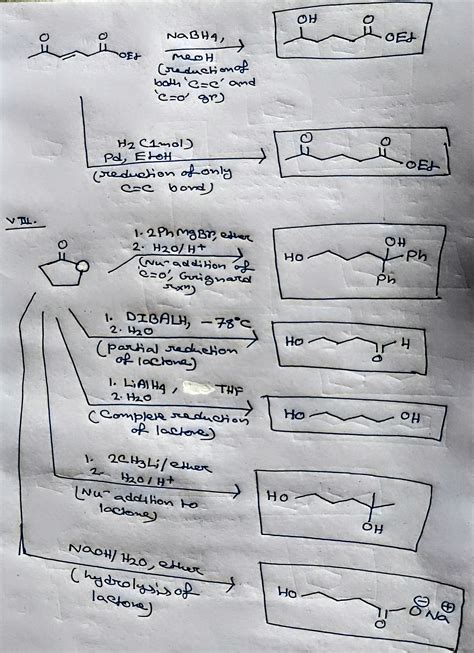 O O OEt
NaBH4,
MeOH
(reduction of
both 'C=C' and
'C=O' gr)
OH O OEt
H2 (1 mol)
Pd, EtOH
(reduction of only
C=C bond)
O O OEt
VIII.
O O
1. 2PhMgBr, ether
2. H2O/H+
(Nu- addition of
'C=O', Grignard
rxn)
HO OH Ph
Ph
1. DIBALH, -78°C
2. H2O
(partial reduction
of lactone)
HO H
O
1. LiAlH4, THF
2. H2O
(Complete reduction
of lactone)
HO OH
1. 2CH3Li/ether
2. H2O/H+
(Nu- addition to
lactone)
HO
OH
NaOH/H2O, ether
(hydrolysis of
lactone)
HO O⊖ Na⊕
O